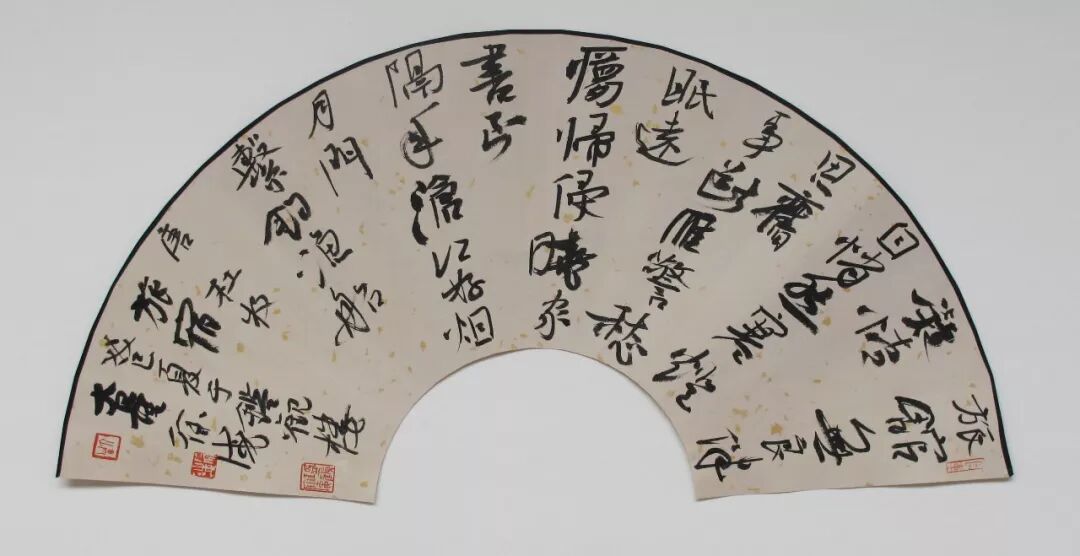 旅館無良伴
凝情
自悄然寒燈
思舊
事斷雁警愁
眠遠
夢歸侵曉家
書到
隔年滄江好烟
月門
繫釣漁船
唐杜牧
旅宿
癸巳夏于鑑觀樓